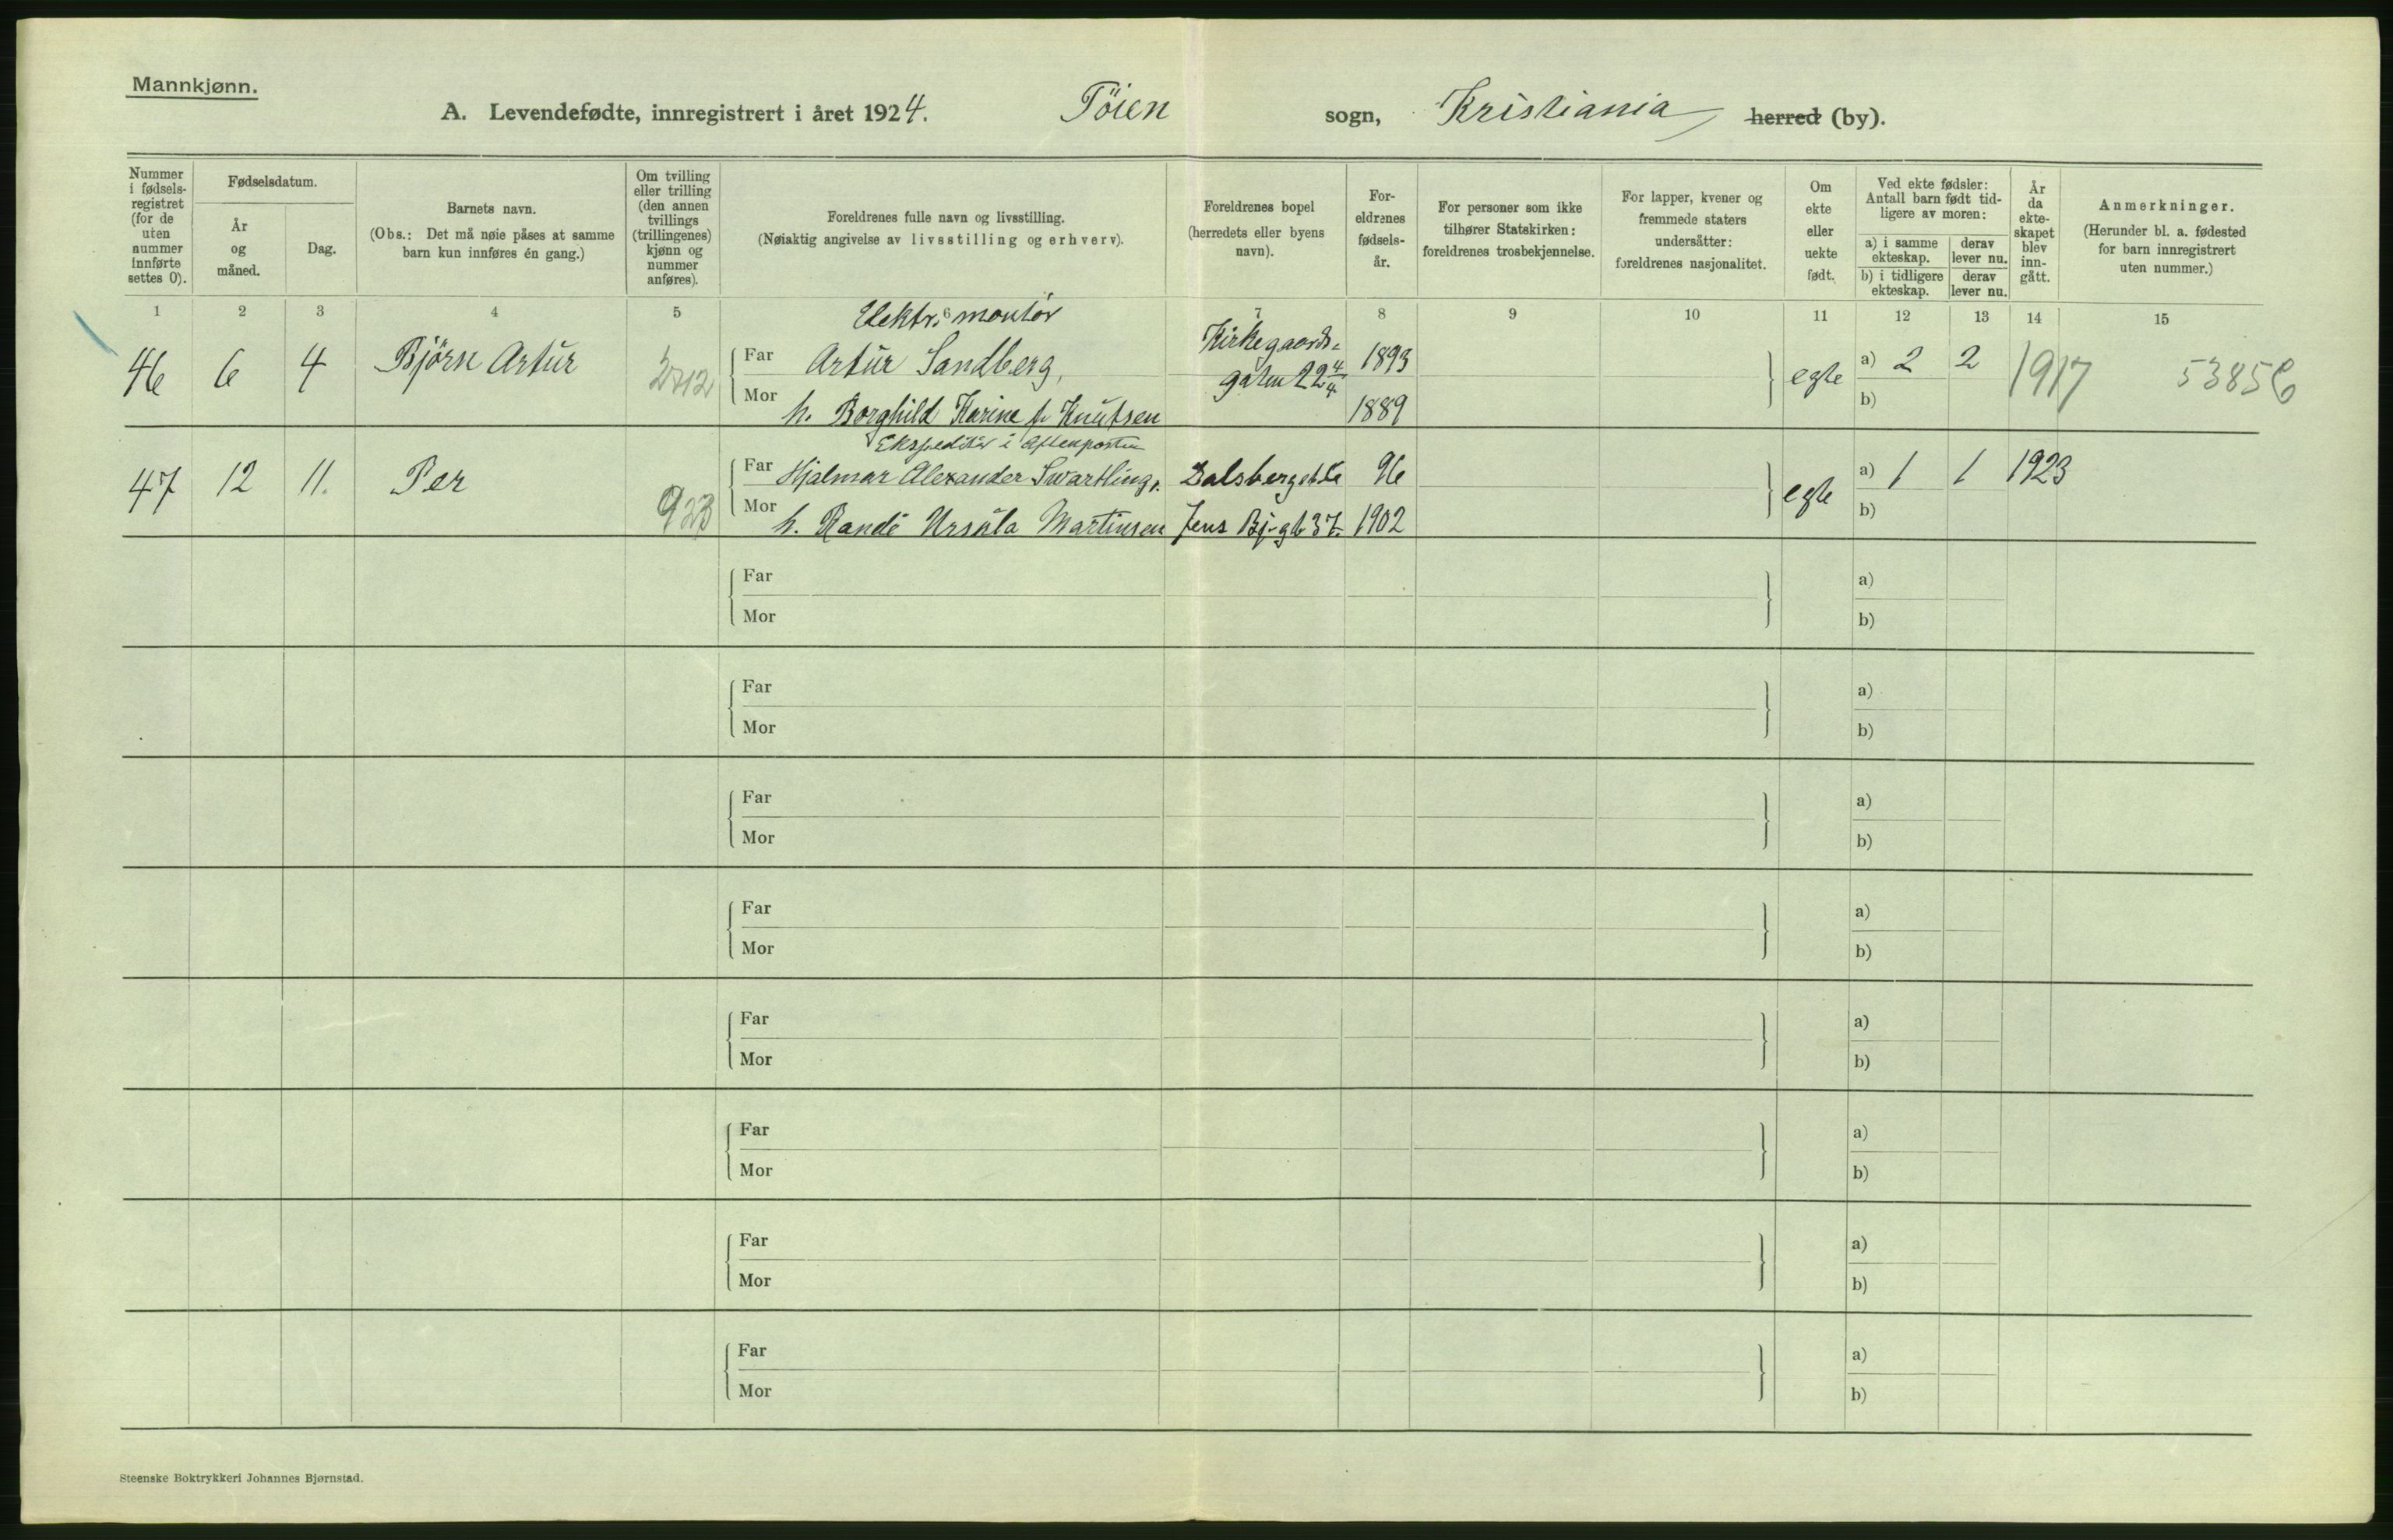 Mannkjønn.
A. Levendefødte, innregistrert i året 1924. Töien sogn, Kristiania herred (by).
Nummer i fødsels-registret (for de uten nummer innførte settes 0).
Fødselsdatum.
År og måned.
Dag.
Barnets navn.
(Obs.: Det må nøie påses at samme barn kun innføres én gang.)
Om tvilling eller trilling (den annen tvillings (trillingenes) kjønn og nummer anføres).
Foreldrenes fulle navn og livsstilling.
(Nøiaktig angivelse av livsstilling og erhverv).
Foreldrenes bopel (herredets eller byens navn).
For-eldrenes fødsels-år.
For personer som ikke tilhører Statskirken: foreldrenes trosbekjennelse.
For lapper, kvener og fremmede staters undersåtter: foreldrenes nasjonalitet.
Om ekte eller uekte født.
Ved ekte fødsler: Antall barn født tid-ligere av moren:
a) i samme ekteskap.
derav lever nu.
b) i tidligere ekteskap.
derav lever nu.
År da ekte-skapet blev inn-gått.
Anmerkninger.
(Herunder bl. a. fødested for barn innregistrert uten nummer.)
1 2 3 4 5 6 7 8 9 10 11 12 13 14 15
Elektr. montör
46 6 4 Björn Artur Far Artur Sandberg, Kirkegaards-gaten 22 4/4 1893 egte a) 2 2 1917 53856
Mor h. Borghild Karine f. Knutsen 1889 b)
Ekspeditör i Aftenposten
47 12 11. Per 923 Far Hjalmar Alexander Swartling, Dalsberget 96 egte a) 1 1 1923
Mor h. Randi Ursula Martinsen Jens Bj. gt 37. 1902 b)
Far a)
Mor b)
Far a)
Mor b)
Far a)
Mor b)
Far a)
Mor b)
Far a)
Mor b)
Far a)
Mor b)
Far a)
Mor b)
Far a)
Mor b)
Steenske Boktrykkeri Johannes Bjørnstad.